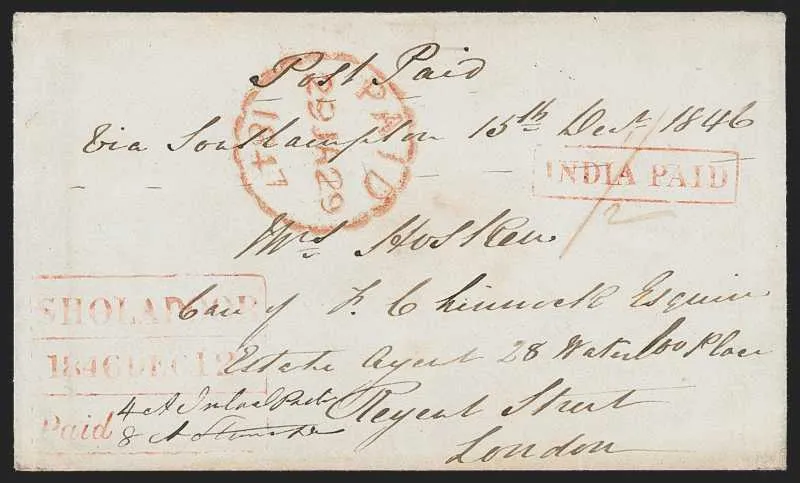 Post Paid
PAID
29 JA 29
1847
Via Southampton 15th Decr 1846
INDIA PAID
1/
2
Mrs Hosken
SHOLAPOOR
Care of F. Chinnock Esquire
1846 DEC 12
Estate Agent 28 Waterloo Place
Paid
4 A Inland Post
8 A Steamer
Regent Street
London